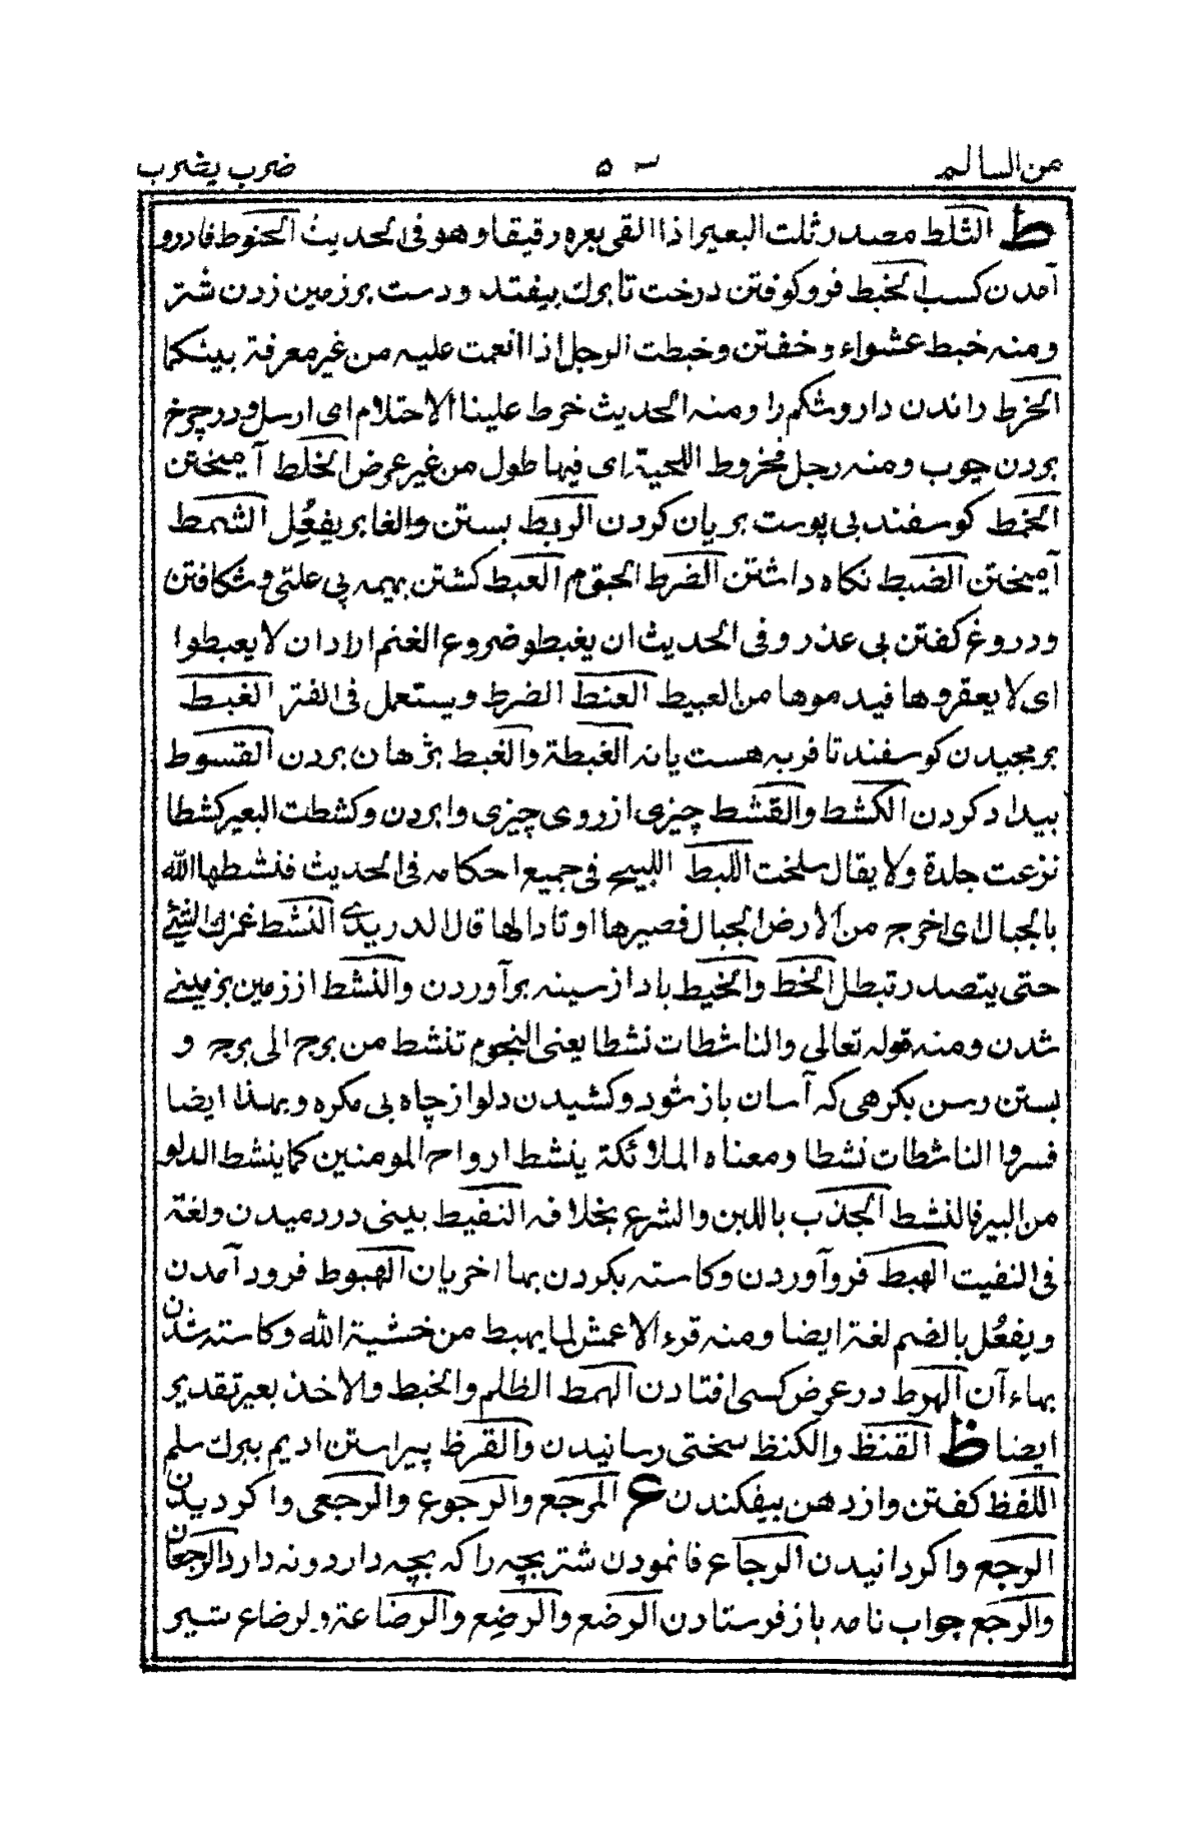 من السالم ۵۰ ضرب يضرب
ط الثلط مصدر ثلت البعير اذا القى بعره رقيقا وهو فى الحديث الحنوط فا درو
آمدن كسب الخبط فرو كوفتن درخت تا برك بيفتد ودست بر زمين زدن شتر
ومنه خبط عشواء وخفتن وخبطت الرجل اذا انعمت عليه من غير معرفة بينكما
الخرط راندن دارو شكم را ومنه الحديث خرط علينا الاحتلام اى ارسل ودر چرخ
بردن چوب ومنه رجل مخروط اللحية اى فيها طول من غير عرض الخلط آميختن
الخمط كوسفند بى پوست بريان كردن الربط بستن والغابر يفعُل الشمط
آميختن الضبط نكاه داشتن الضرط الحبقوم العبط كشتن بهيمه بى علتى وشكافتن
ودروغ كفتن بى عذر وفى الحديث ان يغبطو ضروع الغنم اراد ان لا يعبطوا
اى لا يعقروها فيدموها من العبيط العنط الضرط ويستعمل فى الفتر الغبط
برمجيدن كوسفند تا فربه هست يا نه الغبطة والغبط بژهان بردن القسوط
بيداد كردن الكشط والقشط چيزى از روى چيزى وا بردن وكشطت البعير كشطا
نزعت جلدة ولا يقال سلخت اللبط اللبيح فى جميع احكامه فى الحديث فنشطها الله
بالجبال اى اخرج من الارض الجبال فصيرها اوتادا لها قال الدريدى النشط غمزك الشيئ
حتى يتصدر تبطل الخط والنخيط باد از سينه برآوردن والنشط از زمين بزمينے
شدن ومنه قوله تعالى والناشطات نشطا يعنى النجوم تنشط من برج الى برج و
بستن رسن بكرهى كه آسان باز شود وكشيدن دلو از چاه بى مكره وبهذا ايضا
فسروا الناشطات نشطا ومعناه الملائكة ينشط ارواح المومنين كما ينشط الدلو
من البير فالنشط الجذب باللين والشرع بخلافه النفيط بينى در دميدن ولغة
فى النفيت الهبط فرو آوردن وكاسته بكردن بها اخريان الهبوط فرود آمدن
ويفعُل بالضم لغة ايضا ومنه قرء الاعمش لما يهبط من خشية الله وكاسته شدن
بهاء آن الهرط در عرض كسى افتادن الهمط الظلم والخبط والاخذ بغير تقدير
ايضا ظ القنظ والكنظ سختى رسانيدن والقرظ پيراستن اديم ببرك سلم
اللفظ كفتن واز دهن بيفكندن ع المرجع والرجوع والرجعى واكرديدن
الرجع واكردانيدن الرجاع فا نمودن شتر بچه را كه بچه دارد ونه دارد الرجعان
والرجع جواب نامه باز فرستادن الرضع والرضِع والرضاعة والرضاع شير